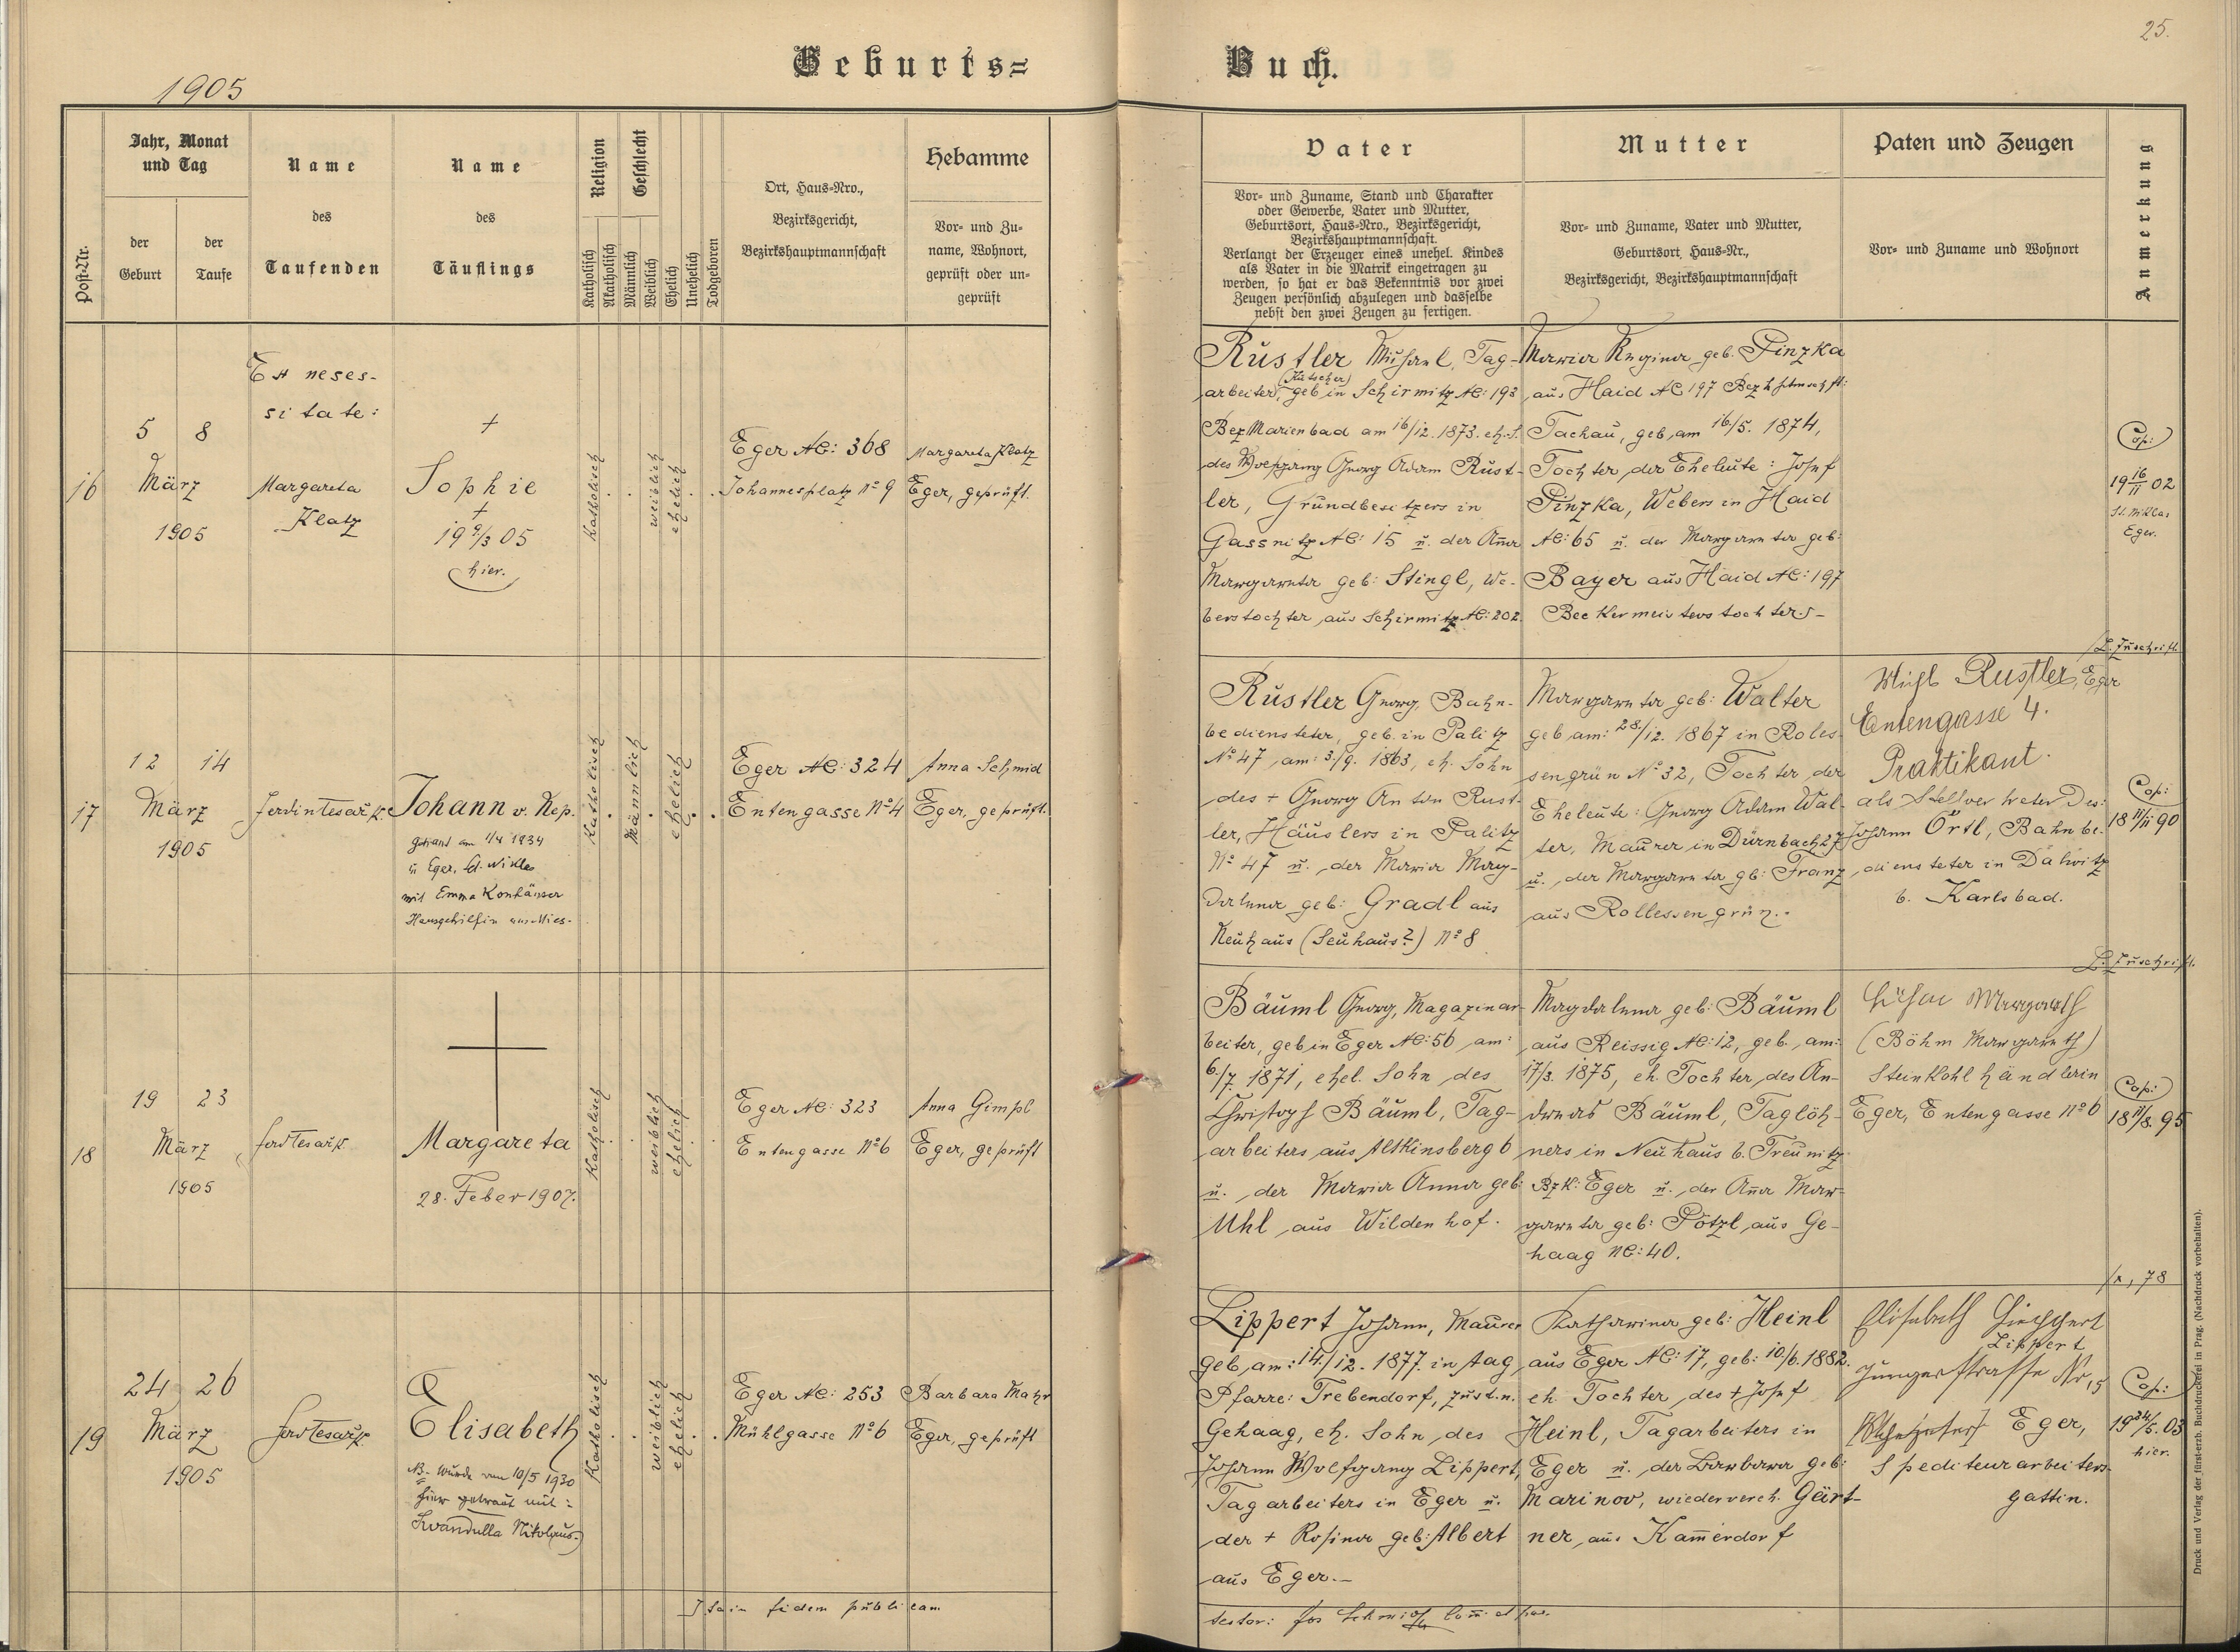 25.
Geburts=
Buch.
1905
Post-Nr.
Jahr, Monat
und Tag
der
Geburt
der
Taufe
Name
des
Taufenden
Name
des
Täuflings
Religion
Katholisch
Akatholisch
Geschlecht
Männlich
Weiblich
Ehelich
Unehelich
Todgeboren
Ort, Haus-Nro.,
Bezirksgericht,
Bezirkshauptmannschaft
Hebamme
Vor- und Zu-
name, Wohnort,
geprüft oder un-
geprüft
Vater
Vor- und Zuname, Stand und Charakter
oder Gewerbe, Vater und Mutter,
Geburtsort, Haus-Nro., Bezirksgericht,
Bezirkshauptmannschaft.
Verlangt der Erzeuger eines unehel. Kindes
als Vater in die Matrik eingetragen zu
werden, so hat er das Bekenntnis vor zwei
Zeugen persönlich abzulegen und dasselbe
nebst den zwei Zeugen zu fertigen.
Mutter
Vor- und Zuname, Vater und Mutter,
Geburtsort, Haus-Nr.,
Bezirksgericht, Bezirkshauptmannschaft
Paten und Zeugen
Vor- und Zuname und Wohnort
Anmerkung
16
5 8
März
1905
Ex neses-
sitate:
Margareta
Klatz
+
Sophie
+
19 9/3 05
hier.
Katholisch
weiblich
ehelich
Eger NC: 368
Johannesplatz No 9
Margareta Klatz
Eger, geprüft.
Rustler Michael, Tag-
arbeiter, (Kutscher) geb in Schirmitz NC: 193
Bez Marienbad am 16/12. 1873. eh. S.
des Wolfgang Georg Adam Rust-
ler, Grundbesitzers in
Gassnitz NC: 15 u. der Anna
Margareta geb: Stingl, We-
berstochter aus Schirmitz NC: 202.
Maria Regina geb. Pinzka
aus Haid NC 197 Bezhptmschft:
Tachau, geb. am 16/5. 1874,
Tochter der Eheleute: Josef
Pinzka, Webers in Haid
NC: 65 u. der Margareta geb:
Bayer aus Haid NC: 197
Beckermeisterstochter.
Cop:
19 16/11 02
St. Niklas
Eger.
L. Zuschrift
17
12 14
März
1905
Johann v. Nep.
getraut am 1/4 1934
in Eger, St. Niklas
mit Emma Konhäuser
Hausgehilfin aus Mies.
Katholisch
Männlich
ehelich
Eger NC: 324
Entengasse No 4
Anna Schmid
Eger, geprüft.
Rustler Georg, Bahn-
bediensteter, geb. in Palitz
No 47, am: 3/9. 1863, eh. Sohn
des + Georg Anton Rust-
ler, Häuslers in Palitz
No 47 u. der Maria Mag-
dalena geb: Gradl aus
Neuhaus (Seuhaus?) No 8
Margareta geb: Walter
geb am: 28/12. 1867 in Roles-
sengrün No 32, Tochter der
Eheleute: Georg Adam Wal-
ter, Maurer in Dürnbach 27
u. der Margareta gb: Franz
aus Rollessengrün.
Michl Rustler, Eger
Entengasse 4.
Praktikant.
als Stellvertreter des:
Johann Örtl, Bahnbe-
diensteter in Dalwitz
b. Karlsbad.
Cop:
18 11/11 90
L. Zuschrift.
18
19 23
März
1905
Margareta
28. Feber 1907.
Katholisch
weiblich
ehelich
Eger NC: 323
Entengasse No 6
Anna Gimpl
Eger, geprüft
Bäuml Georg, Magazinar-
beiter, geb in Eger NC: 56 am:
6/7 1871, ehel. Sohn des
Christoph Bäuml, Tag-
arbeiters aus Altkinsberg 6
u. der Maria Anna geb:
Uhl aus Wildenhof.
Magdalena geb: Bäuml
aus Reissig NC: 12, geb. am:
17/3. 1875, eh. Tochter des An-
dreas Bäuml, Taglöh-
ners in Neuhaus b. Treunitz
Bzk: Eger u. der Anna Mar-
gareta geb: Pötzl aus Ge-
haag NC: 40.
Margareth
(Böhm Margareth)
Steinkohlhändlerin
Eger, Entengasse No 6
Cop:
18 11/8. 95
19
24 26
März
1905
Elisabeth
NB. wurde am 10/5 1930
hier getraut mit:
Swandulla Nikolaus.
Katholisch
weiblich
ehelich
Eger NC: 253
Mühlgasse No 6
Barbara Mahr
Eger, geprüft
Lippert Johann, Maurer
geb. am: 14./12. 1877. in Aag
Pfarre: Trebendorf, zust. n.
Gehaag, eh. Sohn des
Johann Wolfgang Lippert,
Tagarbeiters in Eger u.
der + Rosina geb: Albert
aus Eger.
Katharina geb: Heinl
aus Eger NC: 17, geb: 10./6. 1882.
eh. Tochter des + Josef
Heinl, Tagarbeiters in
Eger u. der Barbara geb:
Marinov, wiedervereh. Gärt-
ner, aus Kammerdorf
Elisabeth
Lippert
Eger,
Spediteurarbeiters-
gattin.
Cop:
19 24/5. 03
hier.
Ita in fidem publicam
testor:
Druck und Verlag der fürst-erzb. Buchdruckerei in Prag. (Nachdruck vorbehalten).